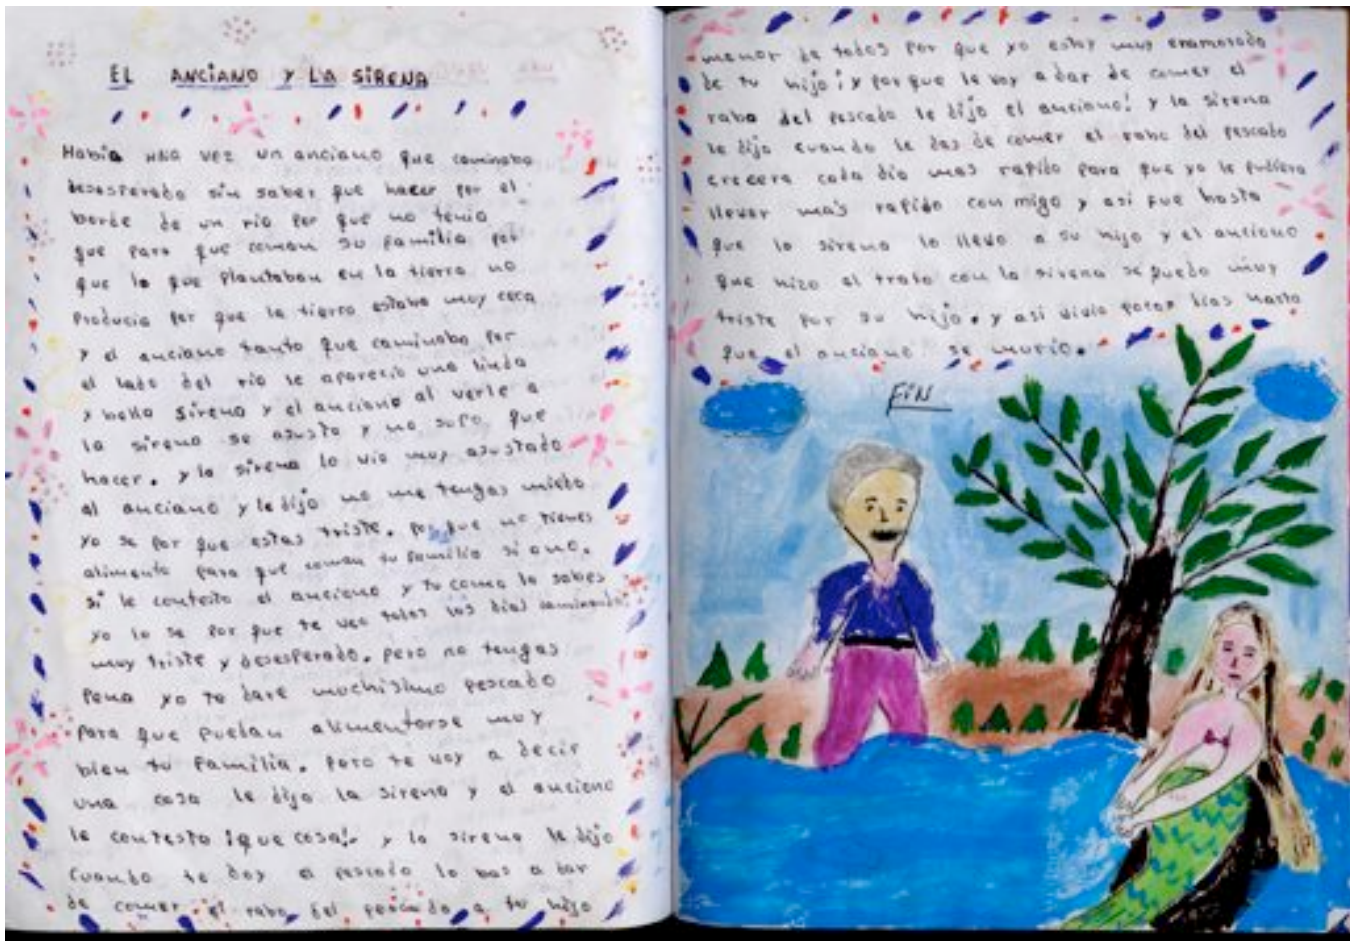 EL ANCIANO Y LA SIRENA
Había una vez un anciano que caminaba
desesperado sin saber que hacer por el
borde de un rio por que no tenia
que para que coman su familia por
que lo que plantaban en la tierra no
producia por que la tierra estaba muy ceca
y el anciano tanto que caminaba por
el lado del rio le aparecio una linda
y bella sirena y el anciano al verle a
la sirena se asusto y no supo que
hacer. y la sirena lo vio muy asustado
al anciano y le dijo no me tengas miedo
yo se por que estas triste. por que no tienes
alimento para que coman tu familia si o no.
si le contesto el anciano y tu como lo sabes
yo lo se por que te veo todos los dias caminando
muy triste y desesperado. pero no tengas
pena yo te dare muchisimo pescado
para que puedan alimentarse muy
bien tu familia. pero te voy a decir
una cosa le dijo la sirena y el anciano
le contesto ¡que cosa! y la sirena le dijo
cuando te doy el pescado lo bas a dar
de comer el rabo del pescado a tu hijo
menor de todos por que yo estoy muy enamorado
de tu hijo ¡y por que le voy a dar de comer el
rabo del pescado le dijo el anciano! y la sirena
le dijo cuando le das de comer el rabo del pescado
crecera cada dia mas rapido para que yo le pudiera
llevar mas rapido con migo y asi fue hasta
que la sirena lo llevo a su hijo y el anciano
que hizo el trato con la sirena se puedo muy
triste por su hijo. y asi vivio pocos dias hasta
que el anciano se murio.
FIN